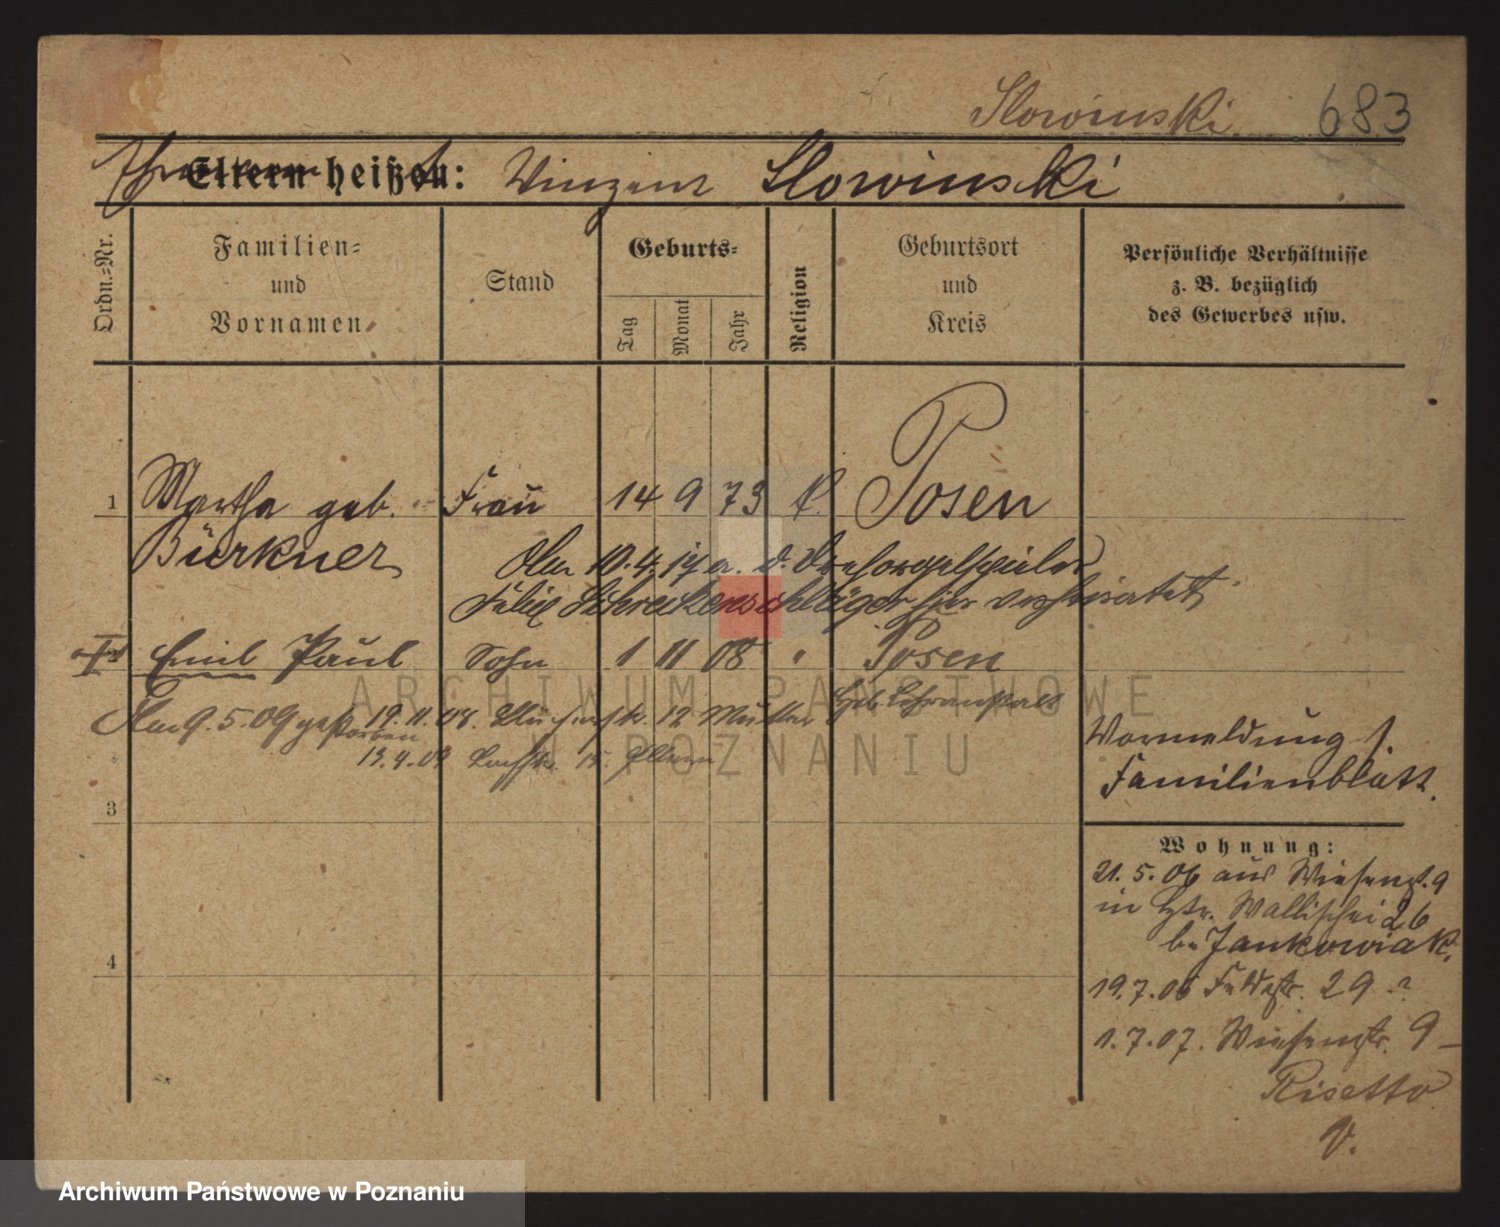 Slowinski 683
Eltern heißen: Vinzent Slowinski
Ordn.=Nr.
Familien=
und
Vornamen
Stand
Geburts=
Tag
Monat
Jahr
Religion
Geburtsort
und
Kreis
Persönliche Verhältnisse
z. B. bezüglich
des Gewerbes usw.
1 Martha geb. Frau 14 9 73 k. Posen
Bürkner
Am 10.4.17 a. d. Drehorgelspieler
Felix Schreckenschläger hier verheiratet
Emil Paul Sohn 1 11 08 " Posen
Am 9.5.09 gestorben 19.11.08. 12 Mutter Heb. Lehranstalt
13.4.09 15 Eltern
Vormeldung s.
Familienblatt.
3
Wohnung:
21.5.06 aus Wiesenst. 9
in Htr. Wallischei 26
bei Jankowiak.
4
19.7.06 Feldstr. 29
1.7.07. Wiesenstr. 9 –
Risetto
V.
ARCHIWUM PAŃSTWOWE
W POZNANIU
Archiwum Państwowe w Poznaniu